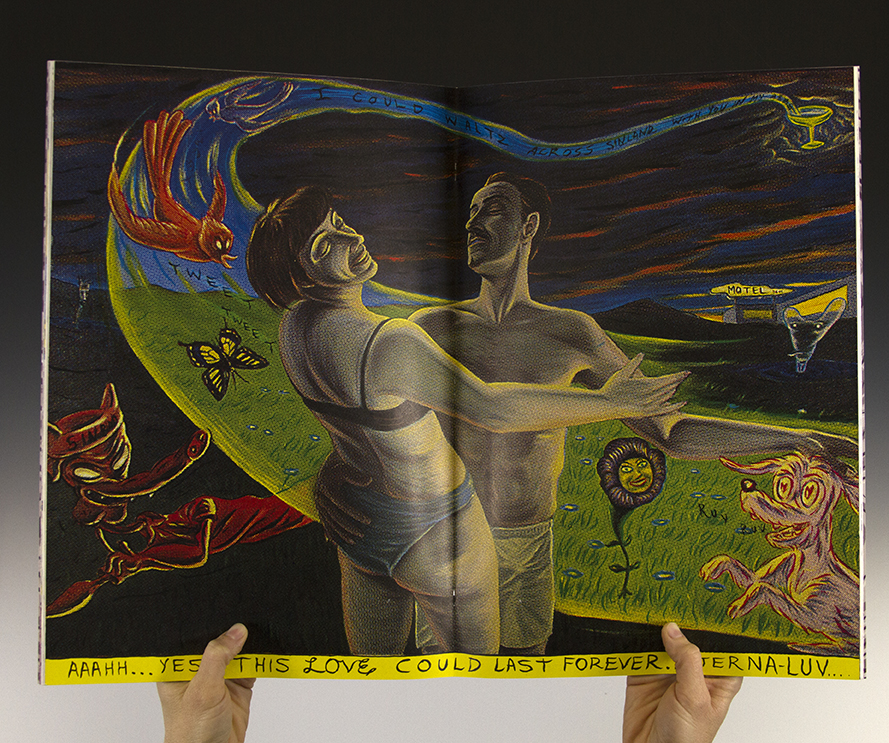 I COULD WALTZ ACROSS SINLAND WITH YOU
TWEET
TWEET
MOTEL
RUV
AAAHH... YES THIS LOVE COULD LAST FOREVER. ETERNA-LUV....